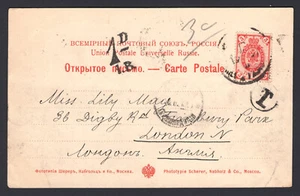 ВСЕМІРНЫЙ ПОЧТОВЫЙ СОЮЗЪ. РОССІЯ.
Union Postale Universelle Russie.
Открытое письмо. — Carte Postale
1D/B
T
Miss. Lily May
96 Digby Rd Finsbury Park
London N
Лондонъ. Англія
Фототипія Шереръ, Набгольцъ и Ко., Москва.
Phototypie Scherer, Nabholz & Co., Moscou.